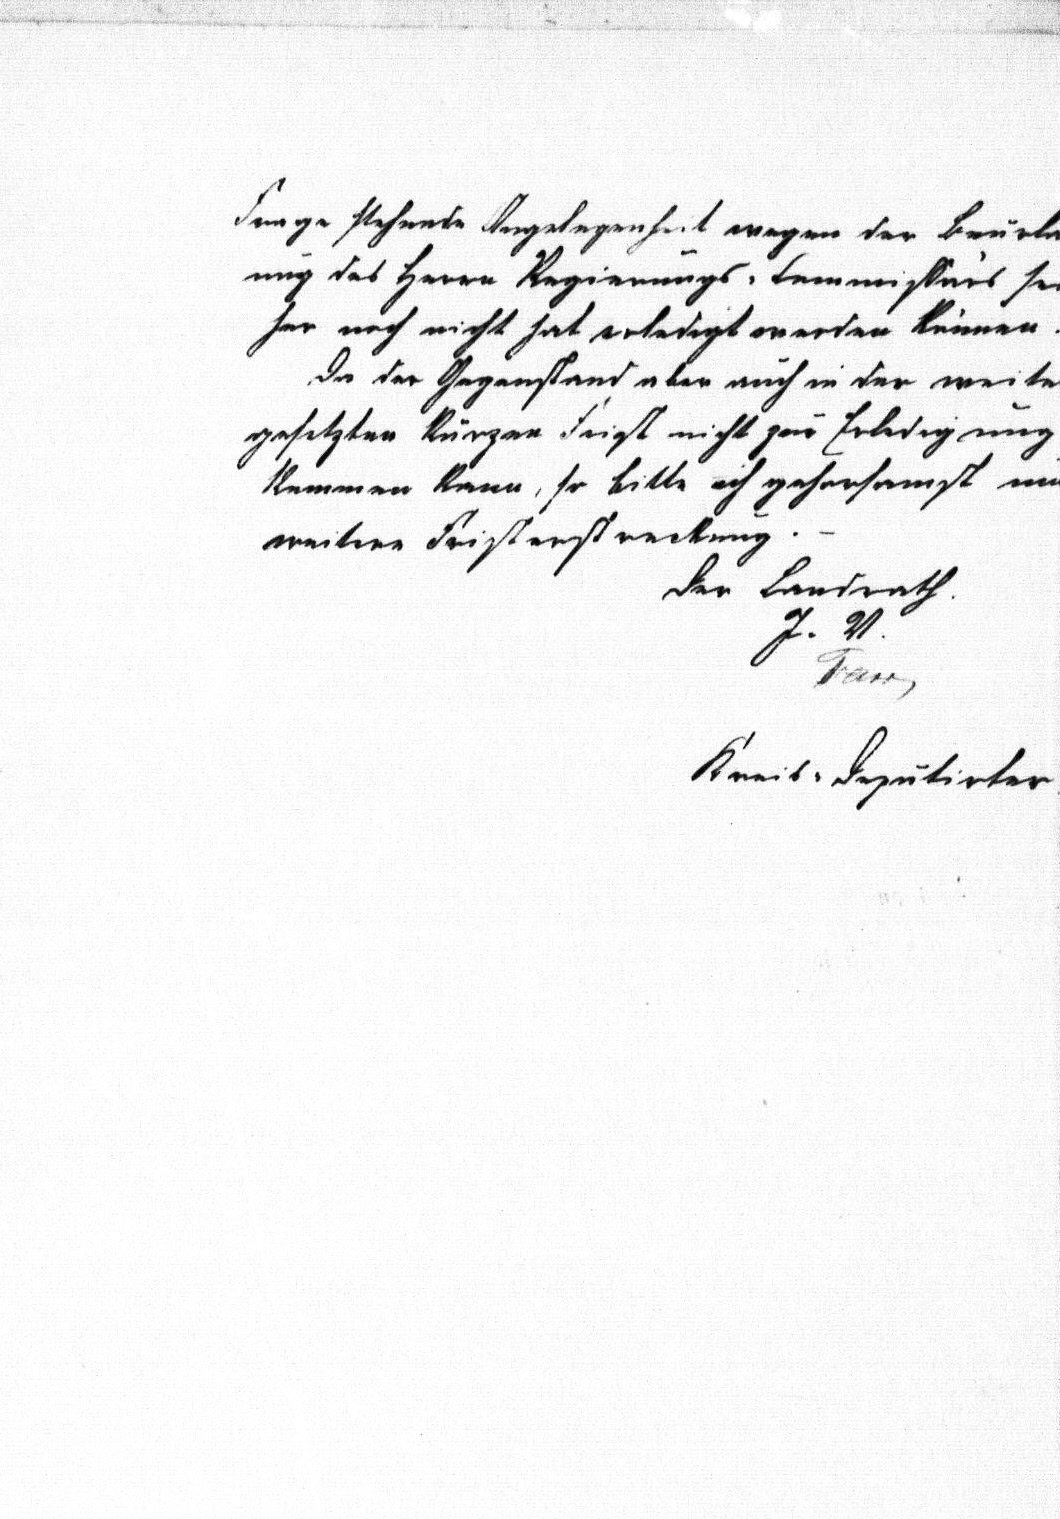 Frage stehende Angelegenheit wegen der Beurla
ung des Herrn Regierungs-Commissärs sei
her noch nicht hat erledigt werden können.
Da der Gegenstand aber auch in der weite
gesetzten kurzen Frist nicht zur Erledigung
kommen kann, so bitte ich gehorsamst um
weitere Fristerstreckung. -
Der Landrath.
J. V.
Kreis-Deputirter.